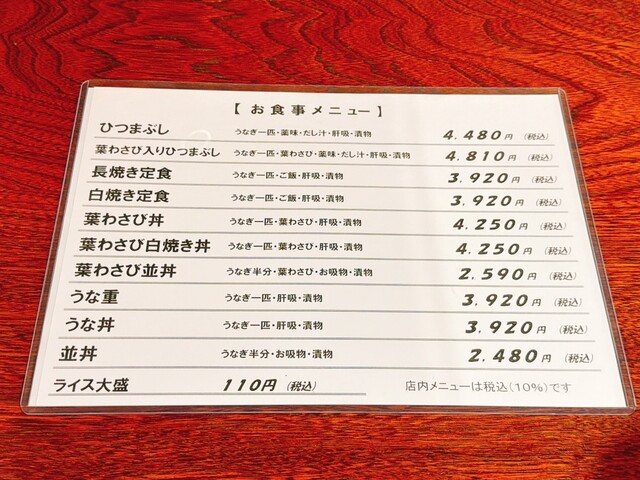 【 お食事メニュー 】
ひつまぶし うなぎ一匹・薬味・だし汁・肝吸・漬物 4,480円 (税込)
葉わさび入りひつまぶし うなぎ一匹・葉わさび・薬味・だし汁・肝吸・漬物 4,810円 (税込)
長焼き定食 うなぎ一匹・ご飯・肝吸・漬物 3,920円 (税込)
白焼き定食 うなぎ一匹・ご飯・肝吸・漬物 3,920円 (税込)
葉わさび丼 うなぎ一匹・葉わさび・肝吸・漬物 4,250円 (税込)
葉わさび白焼き丼 うなぎ一匹・葉わさび・肝吸・漬物 4,250円 (税込)
葉わさび並丼 うなぎ半分・葉わさび・お吸物・漬物 2,590円 (税込)
うな重 うなぎ一匹・肝吸・漬物 3,920円 (税込)
うな丼 うなぎ一匹・肝吸・漬物 3,920円 (税込)
並丼 うなぎ半分・お吸物・漬物 2,480円 (税込)
ライス大盛 110円 (税込) 店内メニューは税込(10%)です